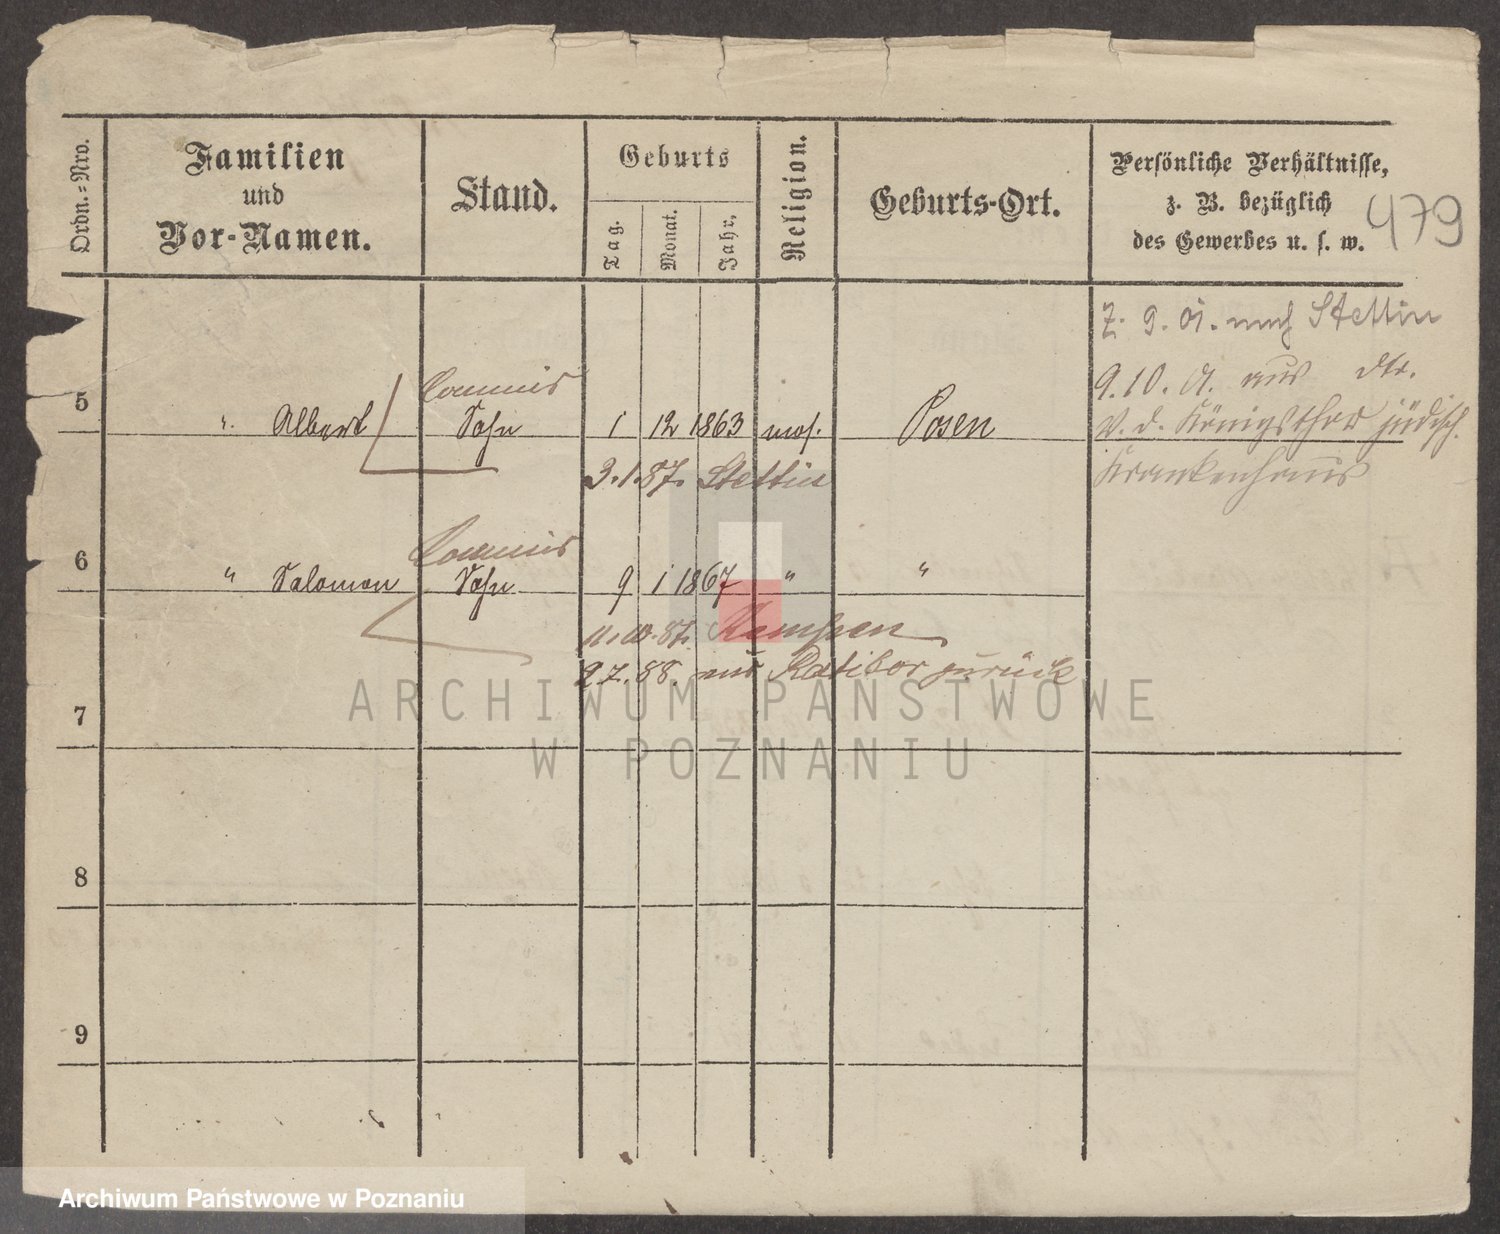 Ordn.=Nro.
Familien
und
Vor-Namen.
Stand.
Geburts
Tag.
Monat.
Jahr.
Religion.
Geburts-Ort.
Persönliche Verhältnisse,
z. B. bezüglich
des Gewerbes u. s. w.
479
7. 9. 01. nach Stettin
9. 10. 01. aus dto.
V. d. Königsthor jüdisch.
Krankenhaus
Commis
5 " Albert Sohn 1 12 1863 mos. Posen
3. 1. 87. Stettin
Commis
6 " Salomon Sohn 9 1 1867 " "
11. 10. 87. Kempen
2 7. 88. aus Ratibor zurück
7
8
9
ARCHIWUM PAŃSTWOWE
W POZNANIU
Archiwum Państwowe w Poznaniu